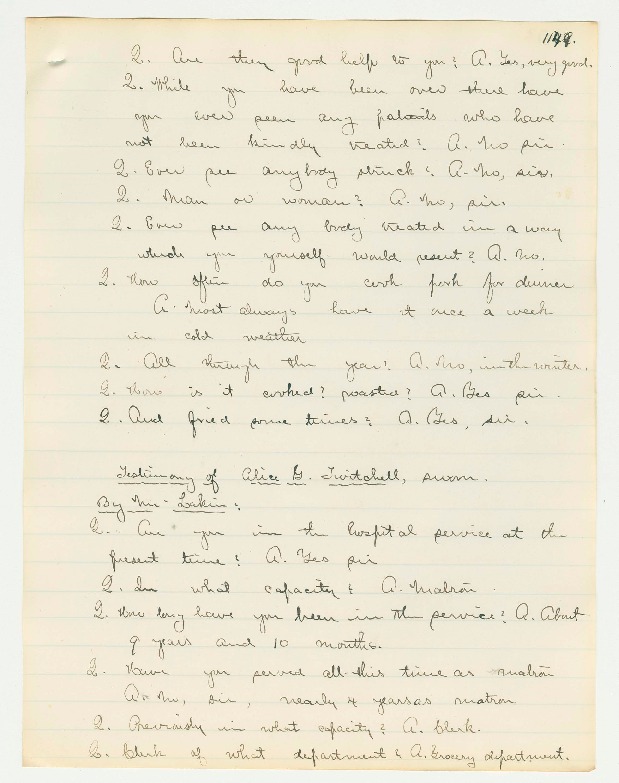 1149.
Q. Are they good help to you? A. Yes, very good.
Q. While you have been over there have
you ever seen any patients who have
not been kindly treated? A. No sir.
Q. Ever see anybody struck? A. No, sir.
Q. Man or woman? A. No, sir.
Q. Ever see any body treated in a way
which you yourself would resent? A. No.
Q. How often do you cook pork for dinner
A. Most always have it once a week
in cold weather
Q. All through the year? A. No, in the winter.
Q. How is it cooked? roasted? A. Yes sir.
Q. And fried some times? A. Yes, sir.
Testimony of Alice G. Twitchell, sworn.
By Mr. Lakin:
Q. Are you in the hospital service at the
present time? A. Yes sir
Q. In what capacity? A. Matron.
Q. How long have you been in the service? A. About
9 years and 10 months.
Q. Have you served all this time as matron
A. No, sir, nearly 4 years as matron
Q. Previously in what capacity? A. Clerk.
Q. Clerk of what department? A. Grocery department.